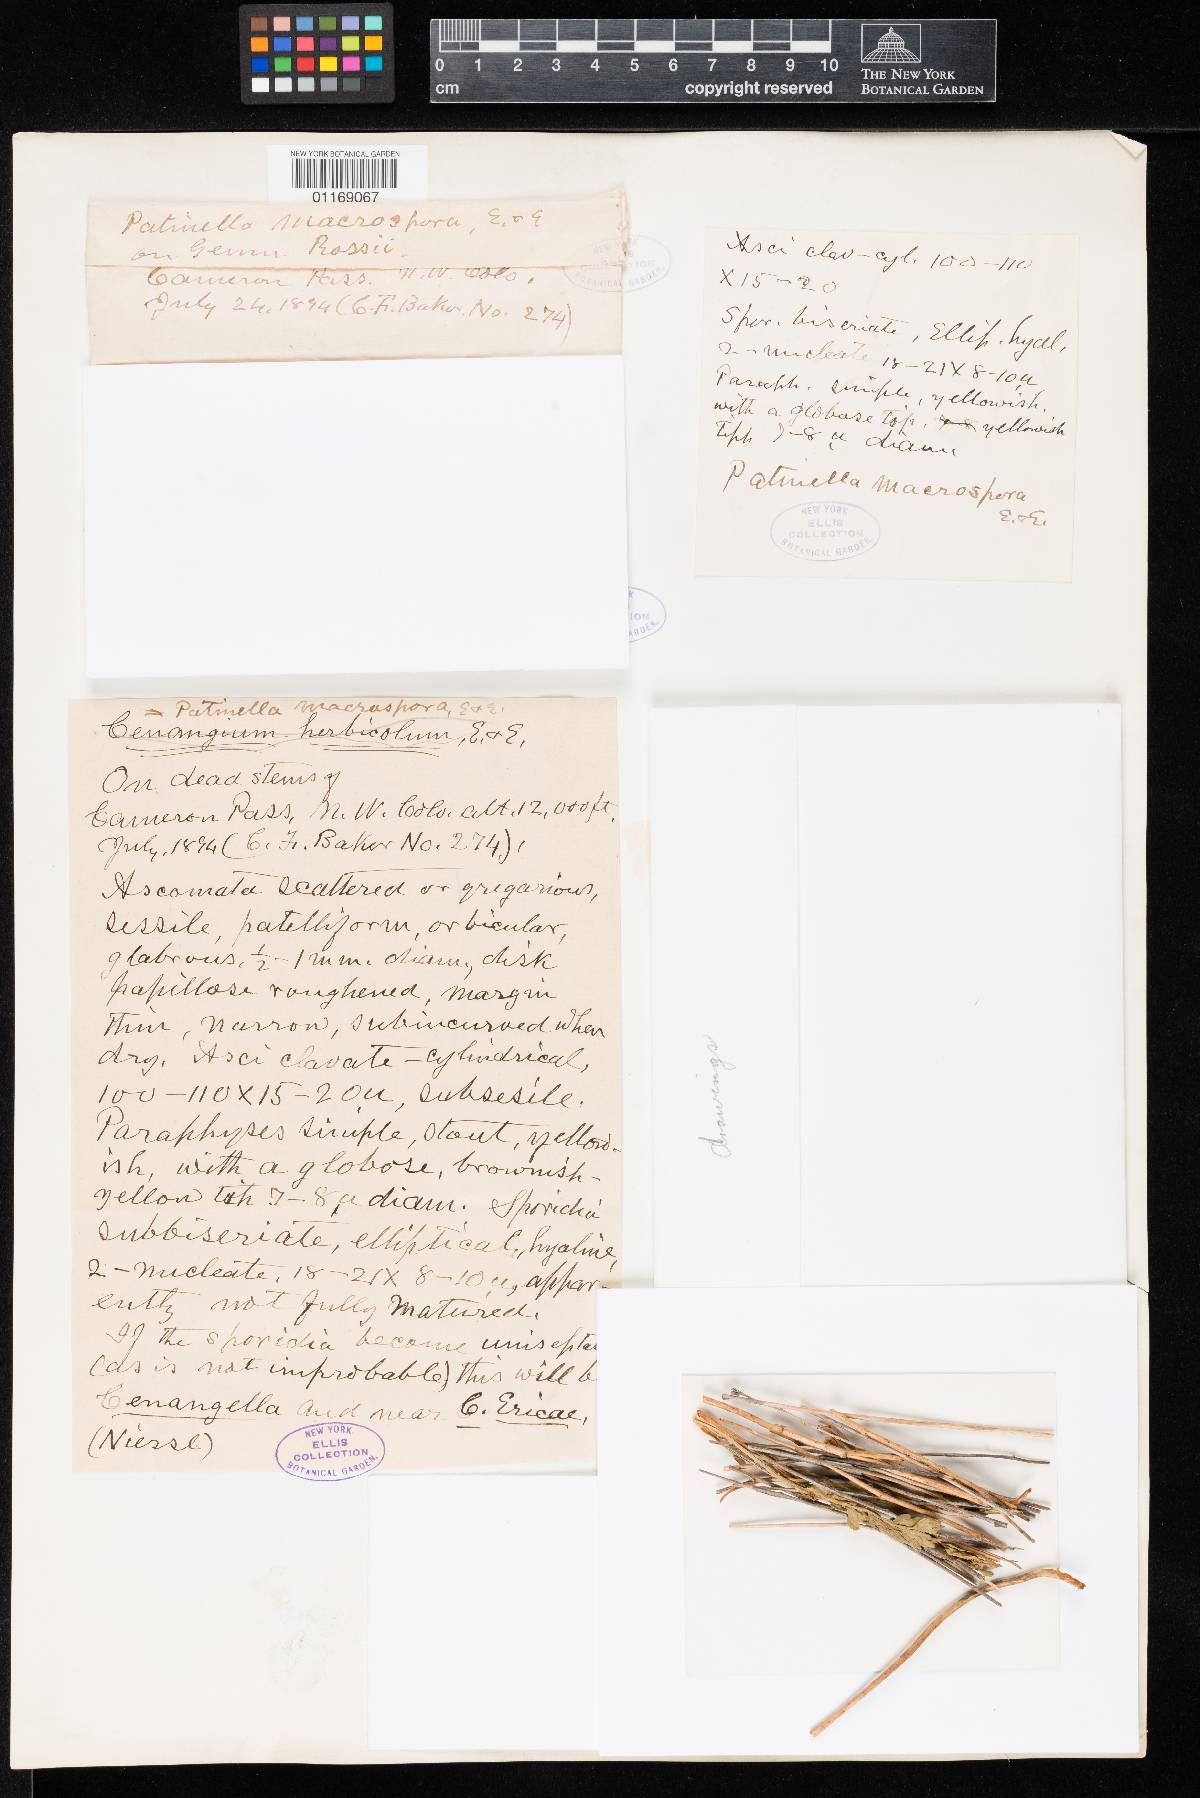 0 1 2 3 4 5 6 7 8 9 10
cm
copyright reserved
THE NEW YORK
BOTANICAL GARDEN
NEW YORK BOTANICAL GARDEN
01169067
Patinella macrospora, E. & E
on Geum Rossii.
Cameron Pass. N. W. Colo.
July 24, 1894 (C. F. Baker. No. 274)
Asci clav-cyl. 100-110
X 15-20
Spor. biseriate, Ellip. hyal,
2-nucleate 18-21 X 8-10µ
Paraph. simple, yellowish.
with a globose tip, yellowish
tiph 7-8 µ diam.
Patinella macrospora
E. & E.
NEW YORK
ELLIS
COLLECTION
BOTANICAL GARDEN.
= Patinella macrospora, E & E.
Cenangium herbicolum, E. & E.
On dead stems of
Cameron Pass, N. W. Colo. alt. 12,000 ft.
July, 1894 (C. F. Baker No. 274),
Ascomata scattered or gregarious,
sessile, patelliform, orbicular,
glabrous. ½-1 mm. diam., disk
papillose roughened, margin
thin, narrow, subincurved when
dry. Asci clavate-cylindrical,
100-110 X 15-20µ, subsesile.
Paraphyses simple, stout, yellow-
ish, with a globose, brownish-
yellow tip 7-8 µ diam. Sporidia
subbiseriate, elliptical, hyaline,
2-nucleate, 18-21 X 8-10 µ, appar-
ently not fully matured.
If the sporidia become unisepta
(as is not improbable) this will b
Cenangella and near C. Ericae,
(Niessl)
NEW YORK
ELLIS
COLLECTION
BOTANICAL GARDEN.
drawings